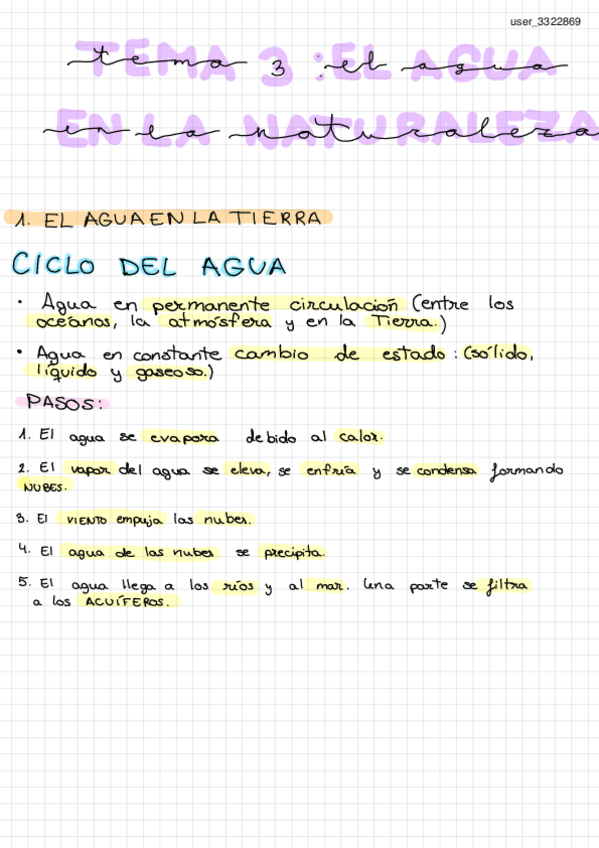 user_3322869
tema 3 : el agua
en la naturaleza
1. EL AGUA EN LA TIERRA
CICLO DEL AGUA
• Agua en permanente circulación (entre los
océanos, la atmósfera y en la Tierra.)
• Agua en constante cambio de estado : (sólido,
líquido y gaseoso.)
PASOS:
1. El agua se evapora debido al calor.
2. El vapor del agua se eleva, se enfría y se condensa formando
NUBES.
3. El VIENTO empuja las nubes.
4. El agua de las nubes se precipita.
5. El agua llega a los ríos y al mar. Una parte se filtra
a los ACUÍFEROS.